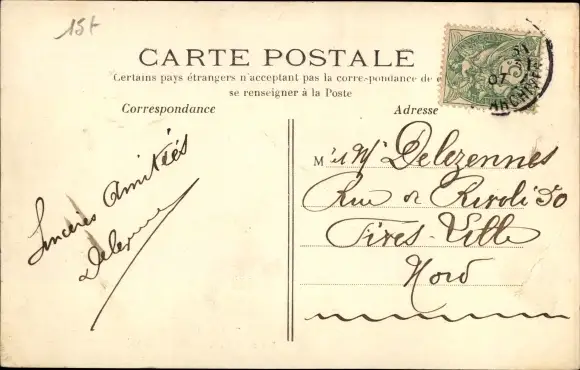 15f
CARTE POSTALE
Certains pays étrangers n'acceptant pas la correspondance de
se renseigner à la Poste
Correspondance
Adresse
Sincères Amitiés
M Delezennes
Rue de Rivoli 50
Fives-Lille
Nord
5
07
ARCHIVES